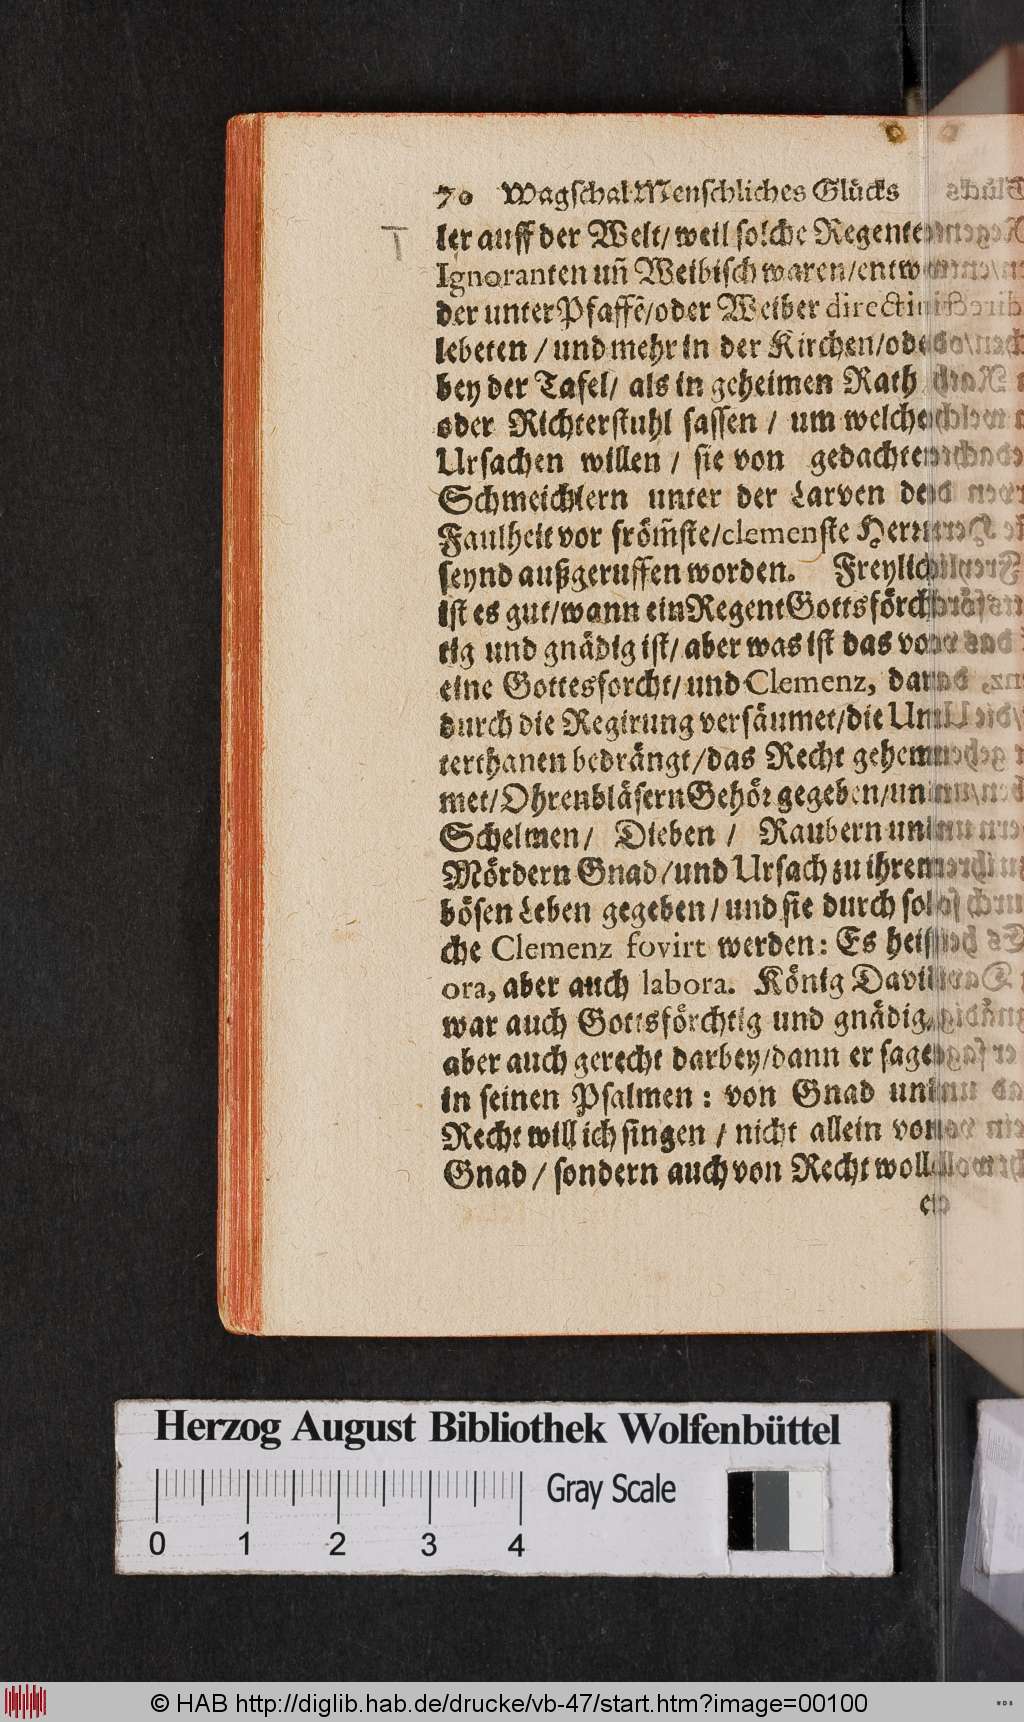 70 Wagschal Menschliches Glücks
ler auff der Welt/ weil solche Regenten
Ignoranten uñ Weibisch waren/entwe-
der unter Pfaffē/oder Weiber direction
lebeten / und mehr in der Kirchen/oder
bey der Tafel/ als in geheimen Rath
oder Richterstuhl sassen / um welcher
Ursachen willen / sie von gedachten
Schmeichlern unter der Larven der
Faulheit vor fröm̃ste/clemenste Herrn
seynd außgeruffen worden. Freylich
ist es gut/wann ein Regent Gottsförch-
tig und gnädig ist/ aber was ist das vor
eine Gottesforcht/ und Clemenz, dar-
durch die Regirung versäumet/die Un-
terthanen bedrängt/das Recht gehem-
met/Ohrenbläsern Gehör gegeben/und
Schelmen/ Dieben / Raubern und
Mördern Gnad /und Ursach zu ihrem
bösen Leben gegeben/ und sie durch sol-
che Clemenz fovirt werden: Es heist
ora, aber auch labora. König David
war auch Gottsförchtig und gnädig,
aber auch gerecht darbey/dann er saget
in seinen Psalmen: von Gnad und
Recht will ich singen / nicht allein von
Gnad / sondern auch von Recht woll-
te
Herzog August Bibliothek Wolfenbüttel
0 1 2 3 4 Gray Scale
© HAB http://diglib.hab.de/drucke/vb-47/start.htm?image=00100